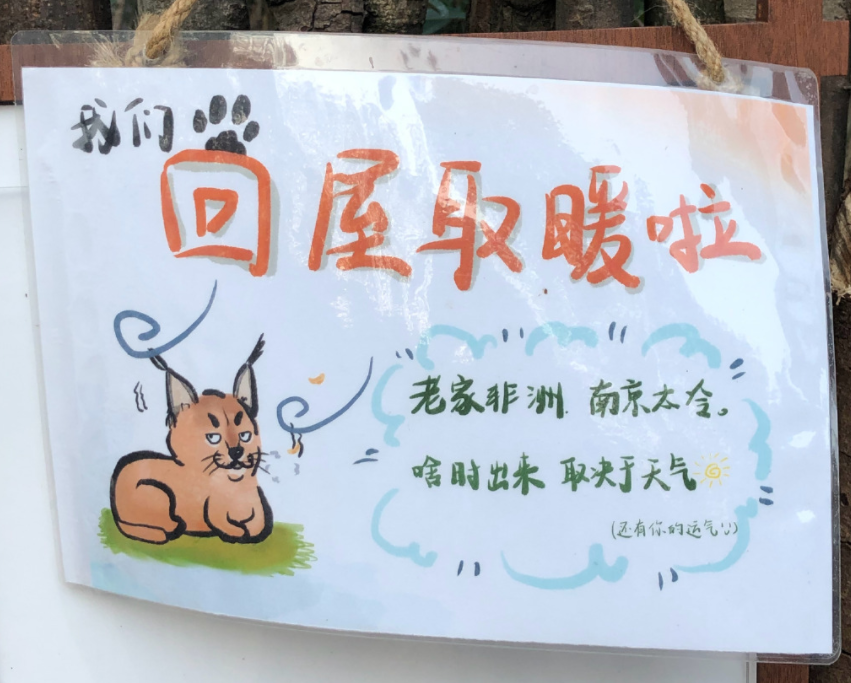 我们
回屋取暖啦
老家非洲.南京太冷。
啥时出来 取决于天气
(还有你的运气!)